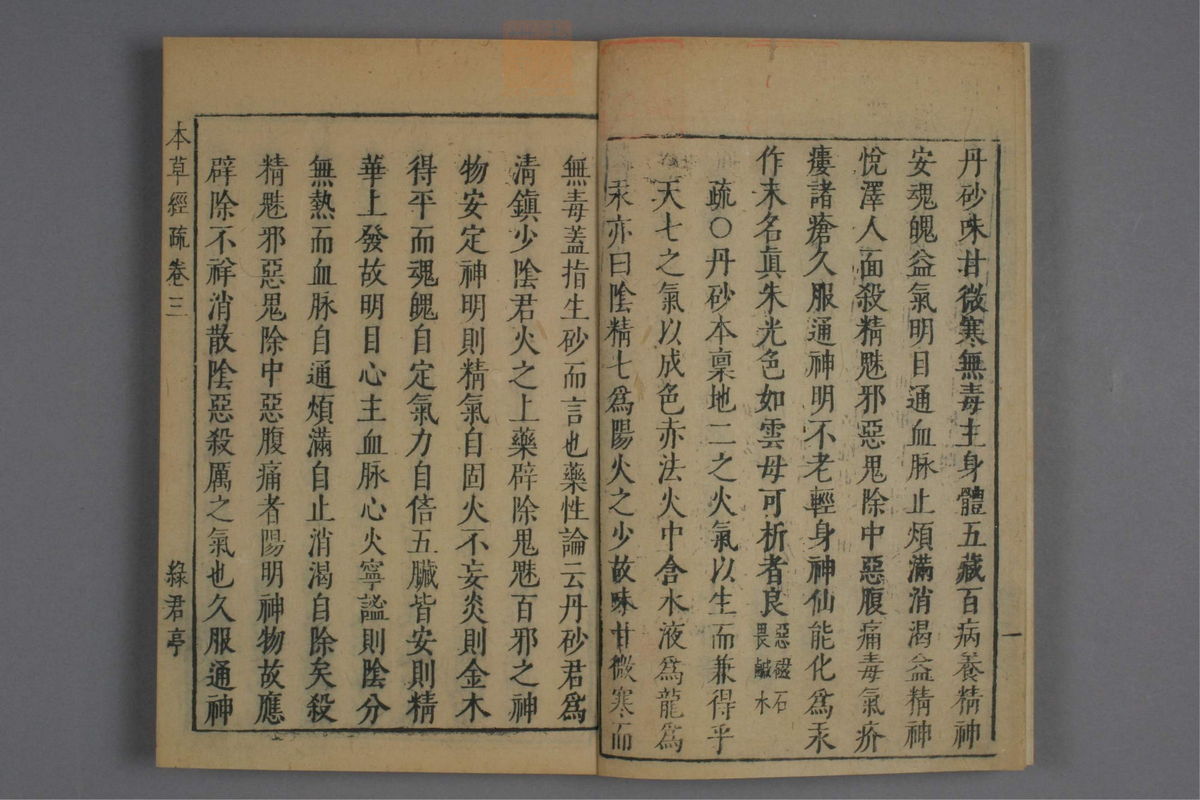 丹砂味甘微寒無毒主身體五藏百病養精神
安魂魄益氣明目通血脉止煩滿消渴益精神
悅澤人面殺精魅邪惡鬼除中惡腹痛毒氣疥
瘻諸瘡久服通神明不老輕身神仙能化為汞
作末名眞朱光色如雲母可析者良惡磁石
畏鹹水
疏○丹砂本稟地二之火氣以生而兼得乎
天七之氣以成色赤法火中含水液爲龍爲
汞亦曰陰精七爲陽火之少故味甘微寒而
一
無毒蓋指生砂而言也藥性論云丹砂君爲
清鎮少陰君火之上藥辟除鬼魅百邪之神
物安定神明則精氣自固火不妄炎則金木
得平而魂魄自定氣力自倍五臟皆安則精
華上發故明目心主血脉心火寧謐則陰分
無熱而血脉自通煩滿自止消渴自除矣殺
精魅邪惡鬼除中惡腹痛者陽明神物故應
辟除不祥消散陰惡殺厲之氣也久服通神
本草經疏卷三
綠君亭